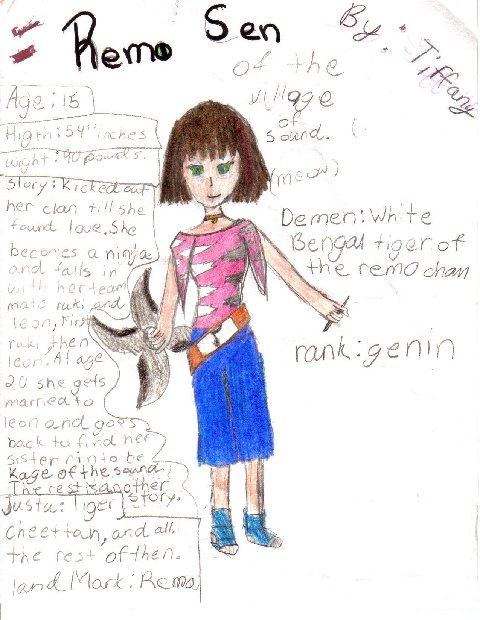 Remo Sen
By: Tiffany
of the
village
of
sound.
(meow)
Age: 15
Higth: 54" inches
wight: 90 pounds.
Story: Kicked out
her clan till she
found love. She
becomes a ninja
and falls in
with her team
mate ruki, and
leon, First
ruki then
leon. At age
20 she gets
married to
leon and goes
back to find her
sister rin to be
Kage of the sound.
The rest is another
story.
Justu: Tiger
Cheettah, and all
the rest of then.
land Mark: Remo
Demen: White
Bengal tiger of
the remo chan
rank: genin